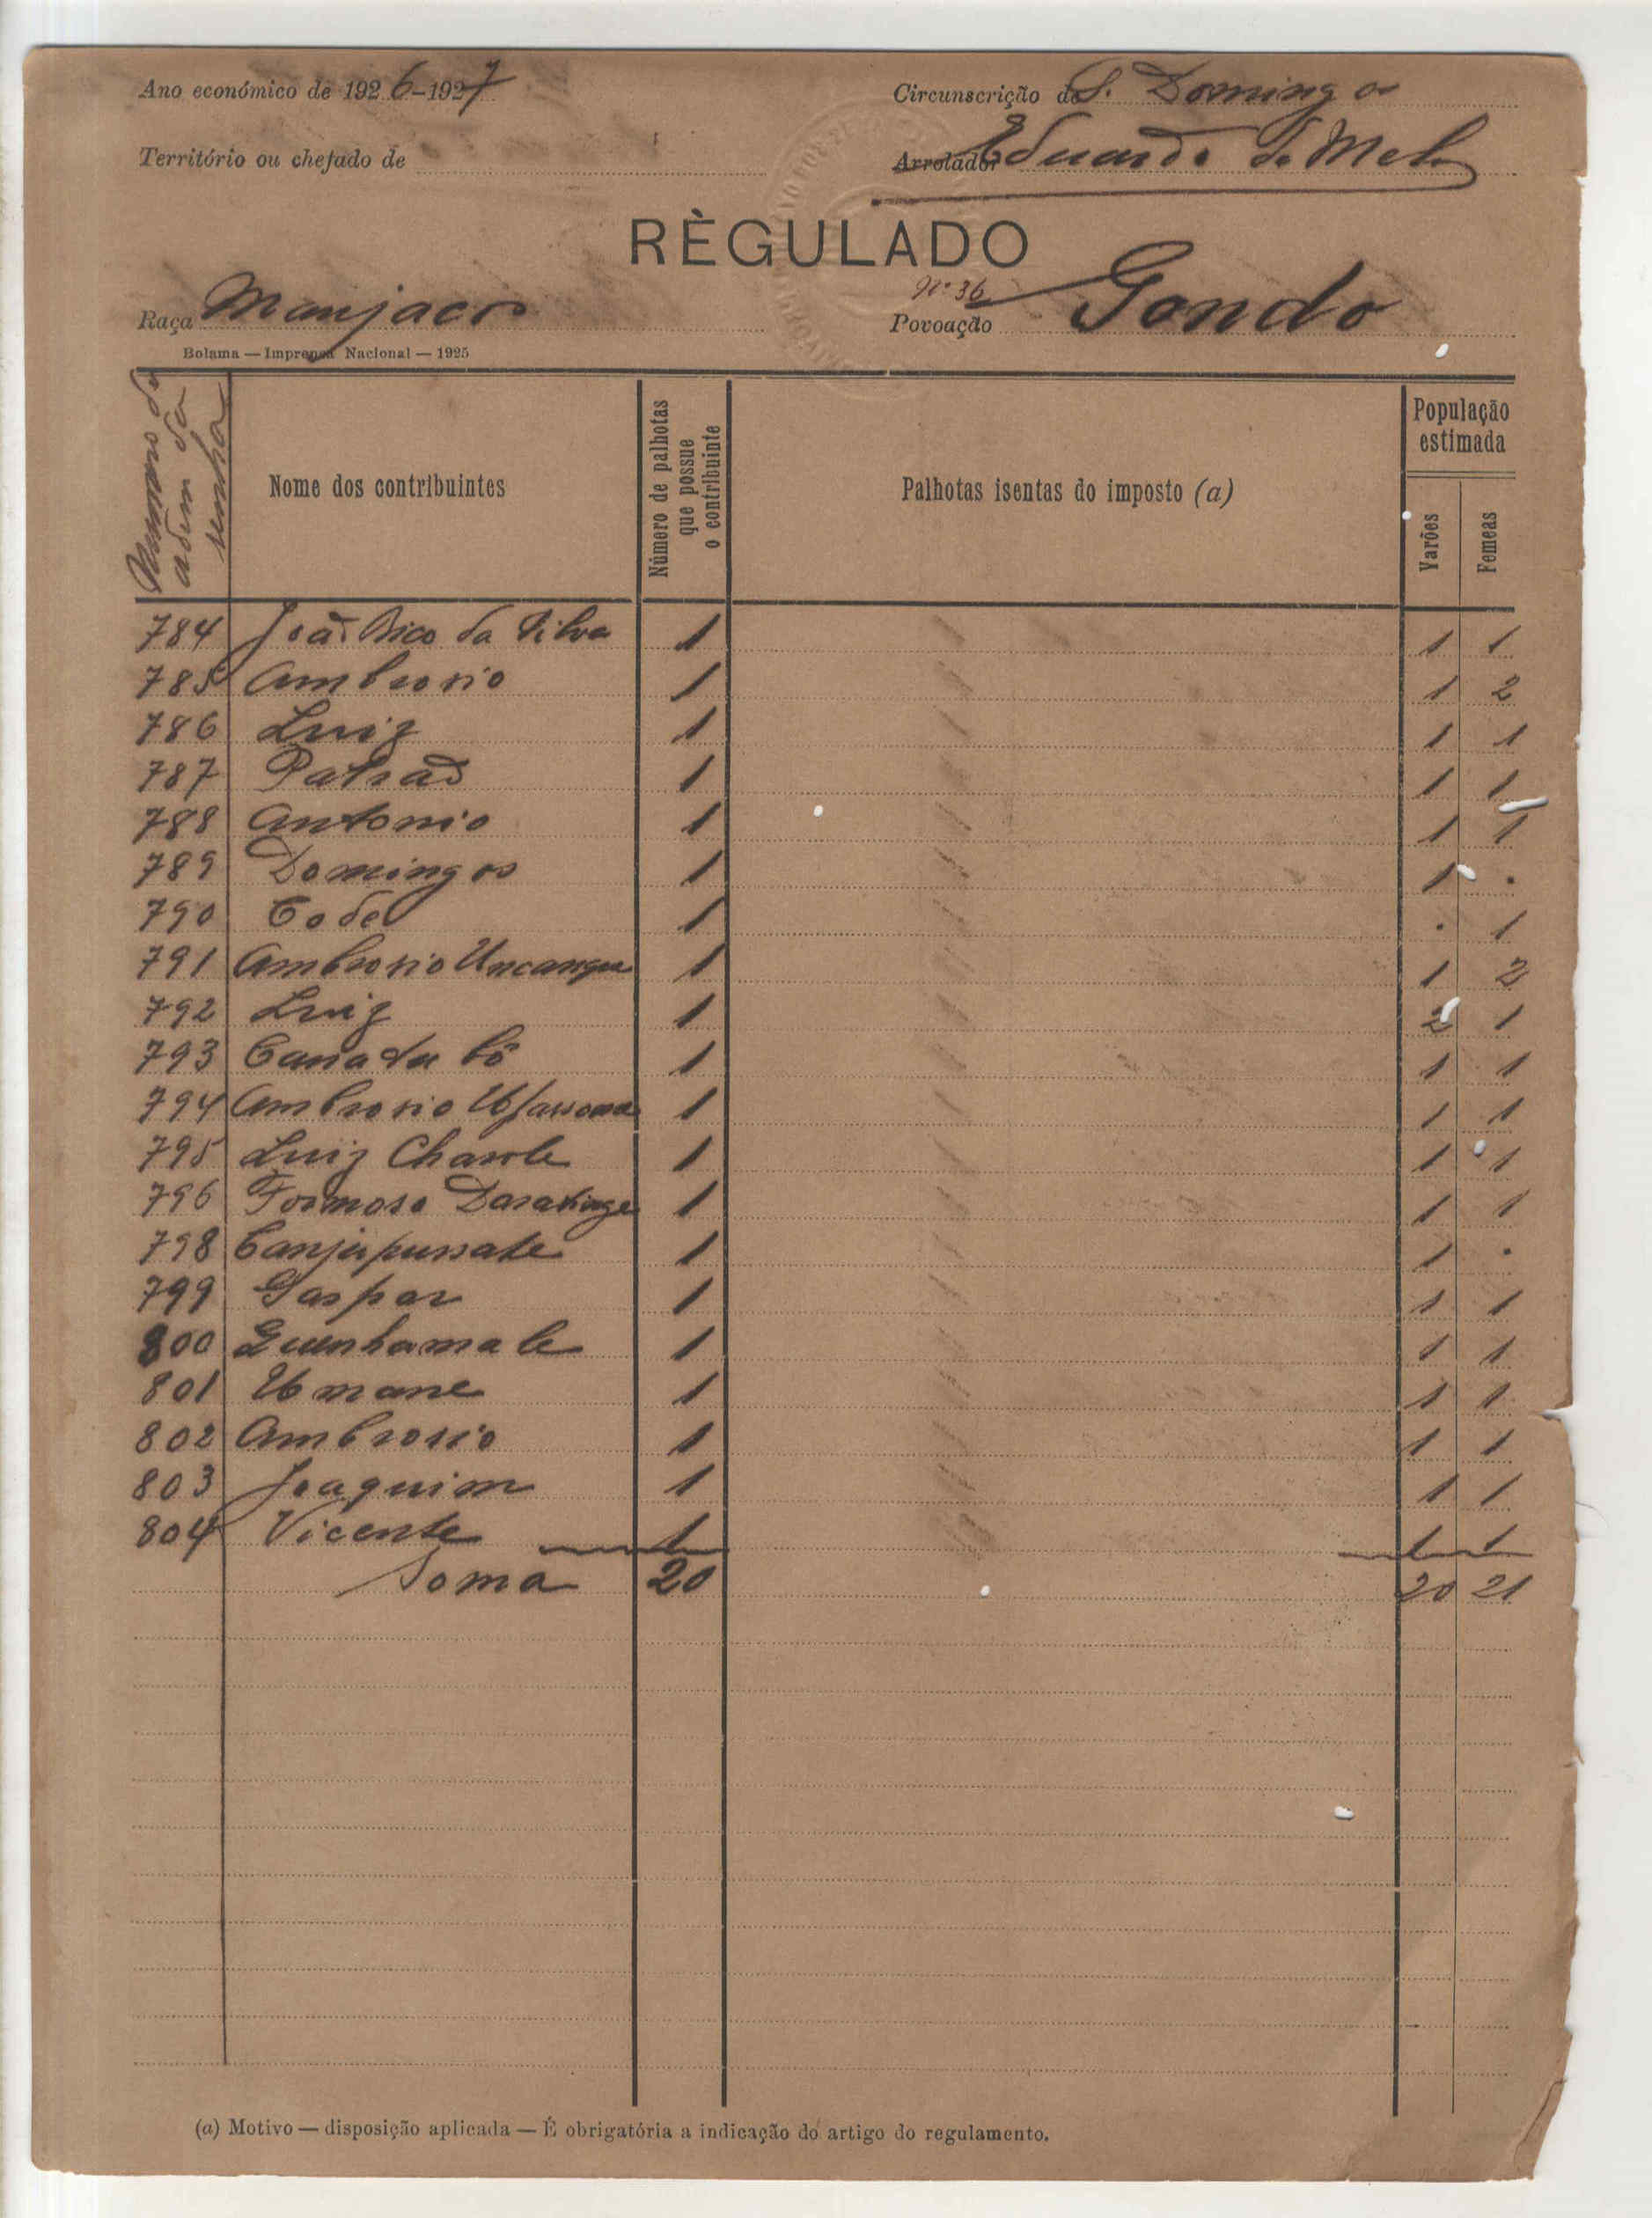 Ano económico de 1926-1927
Circunscrição de S. Domingos
Território ou chefado de
Arrolador Eduardo de Melo
RÈGULADO
Raça Manjacos
Nº 36
Povoação Gondo
Bolama — Imprensa Nacional — 1925
Numero de
ordem da
senha
Nome dos contribuintes
Número de palhotas
que possue
o contribuinte
Palhotas isentas do imposto (a)
População
estimada
Varões
Femeas
784 João Bico da Silva 1 1 1
785 Ambrosio 1 1 2
786 Luiz 1 1 1
787 Patrão 1 1 1
788 Antonio 1 1 1
789 Domingos 1 1 .
790 Code 1 . 1
791 Ambrosio Uncangu 1 1 2
792 Luiz 1 2 1
793 1 1 1
794 Ambrosio 1 1 1
795 Luiz Charle 1 1 1
796 Formoso 1 1 1
798 Canjupussate 1 1 .
799 Gaspar 1 1 1
800 1 1 1
801 Umane 1 1 1
802 Ambrosio 1 1 1
803 Joaquim 1 1 1
804 Vicente 1 1 1
Soma 20 20 21
(a) Motivo — disposição aplicada — É obrigatória a indicação do artigo do regulamento.